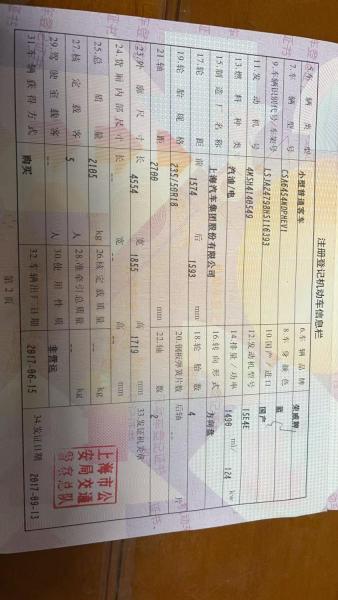 注册登记机动车信息栏
5.车辆类型 小型普通客车 6.车辆品牌 荣威牌
7.车辆型号 8.车身颜色
9.车辆识别代号/车架号 10.国产/进口 国产
11.发动机号 12.发动机型号 15E4E
13.燃料种类 汽油/电 14.排量/功率 1490 ml/ 124 kw
15.制造厂名称 上海汽车集团股份有限公司 16.转向形式 方向盘
17.轮距 前 1574 后 1593 mm 18.轮胎数 4
19.轮胎规格 235/50R18 20.钢板弹簧片数 后轴 -- 片
21.轴距 2700 mm 22.轴数 2
23.外廓尺寸 长 4554 宽 1855 高 1719 mm 33.发证机关章
24.货厢内部尺寸 长 -- 宽 -- 高 -- mm
25.总质量 2185 kg 26.核定载质量 -- kg
27.核定载客 5 人 28.准牵引总质量 -- kg
29.驾驶室载客 -- 人 30.使用性质 非营运
31.车辆获得方式 购买 32.车辆出厂日期 2017-06-15 34.发证日期 2017-09-13
上海市公
安局交通
警察总队
第2页